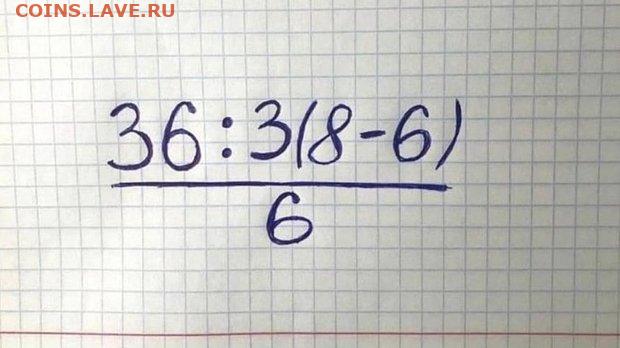 COINS.LAVE.RU
36:3(8-6)
6